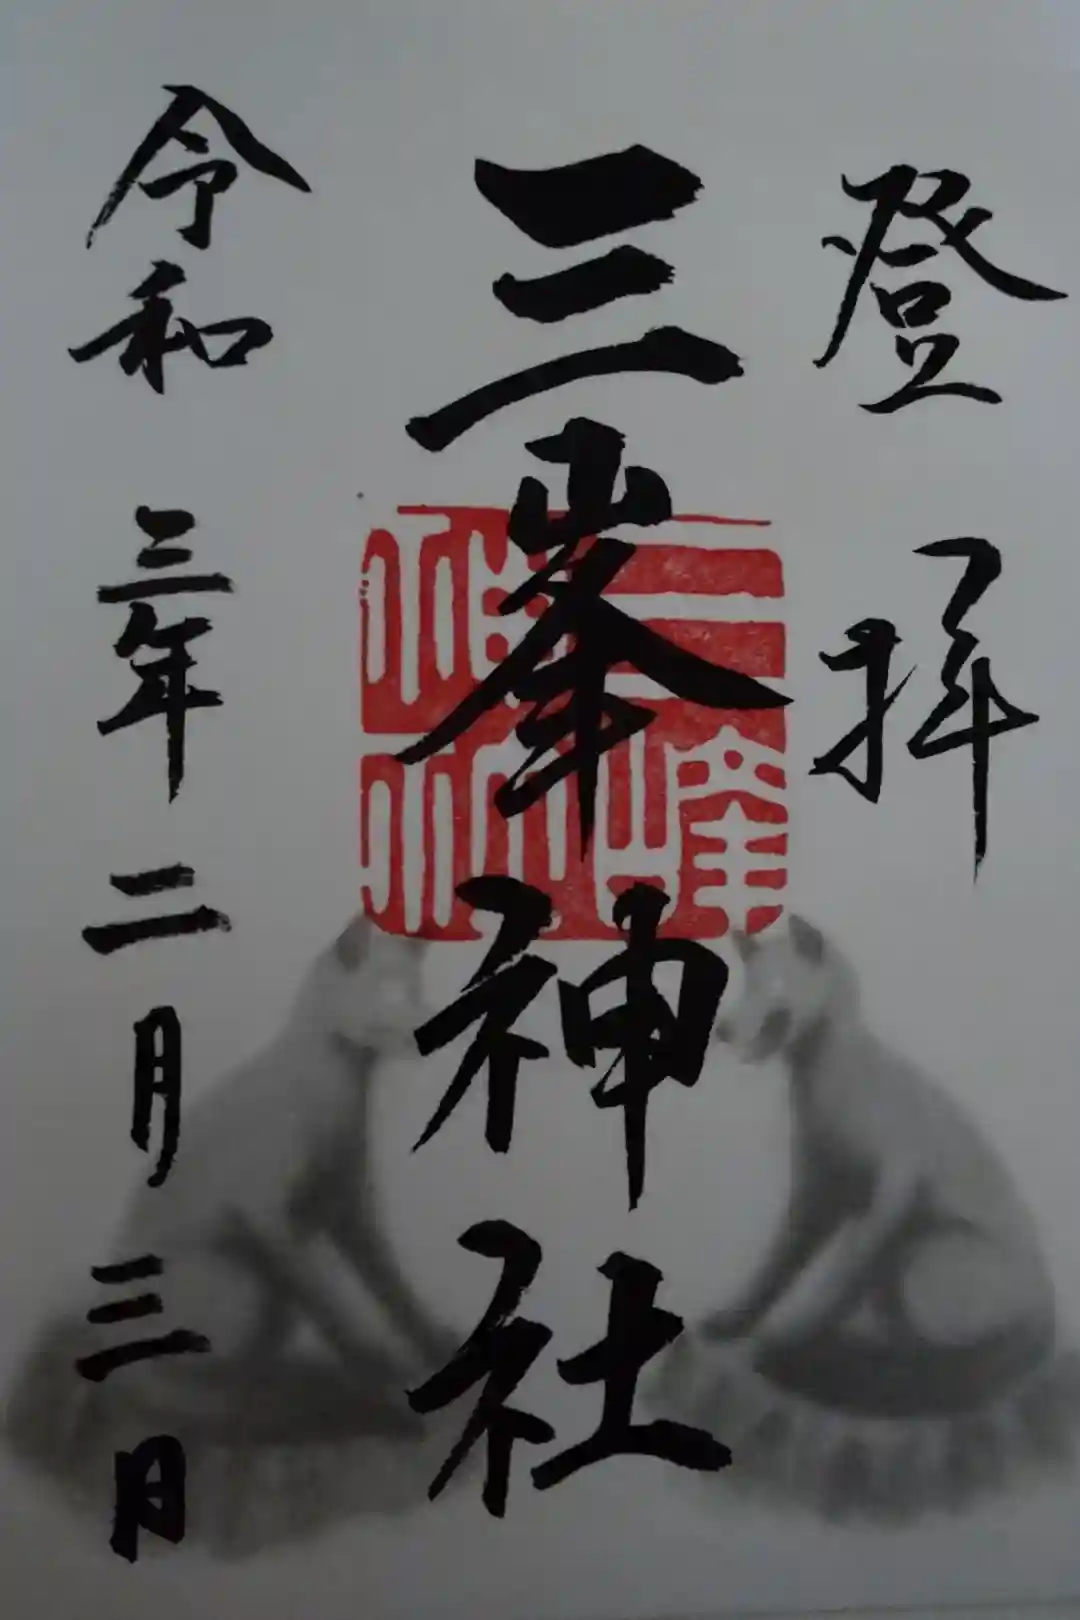 登拝
三峯神社
三峰神社
令和三年二月三日